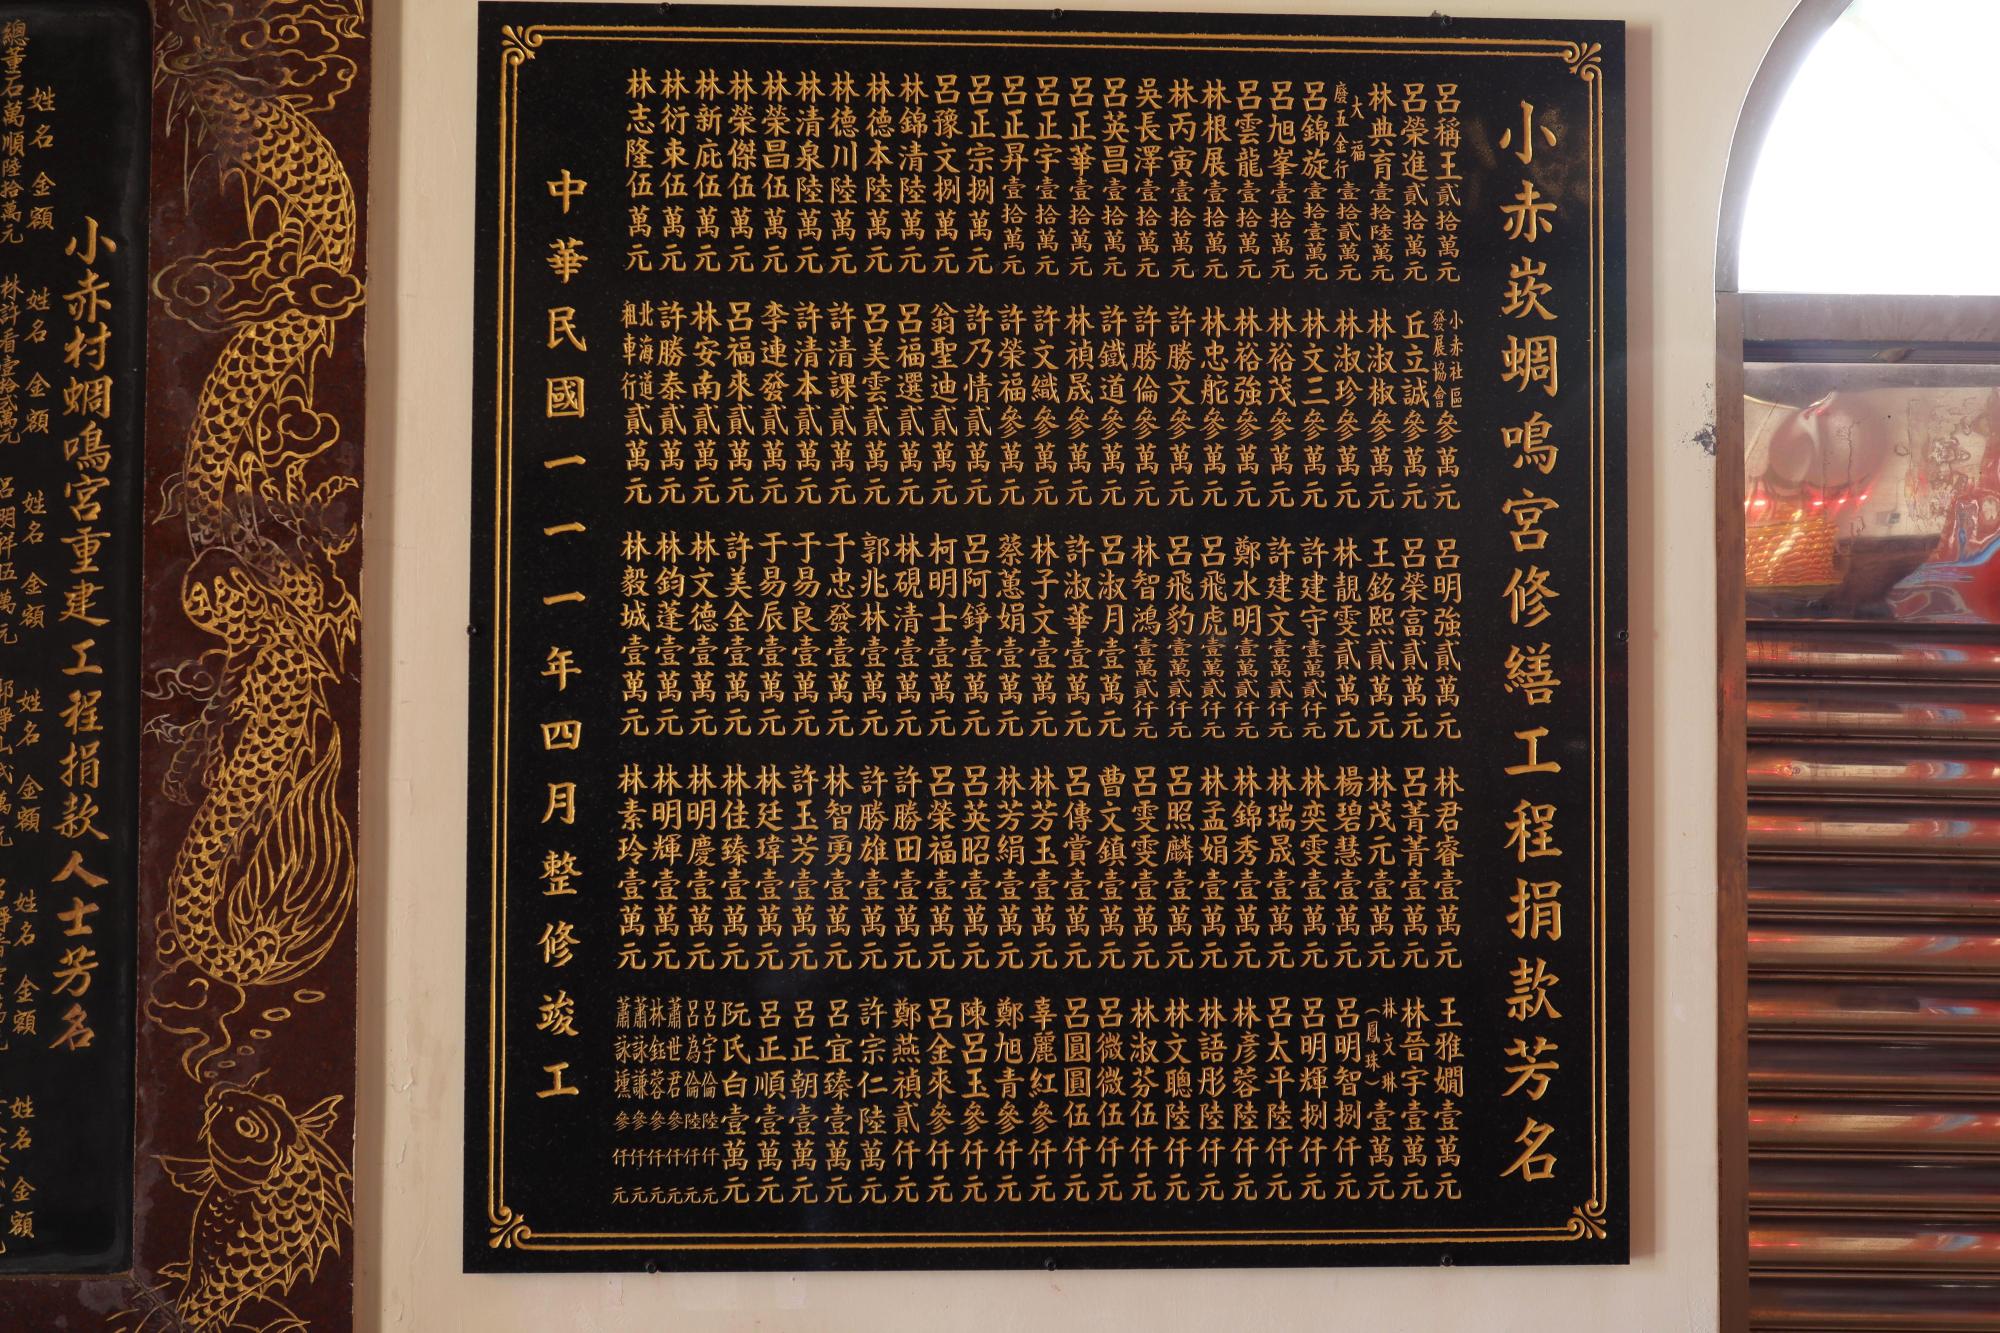 小赤崁蜩鳴宮修繕工程捐款芳名
呂稱王貳拾萬元
呂榮進貳拾萬元
林典育壹拾陸萬元
大福廢五金行壹拾貳萬元
呂錦旋壹拾壹萬元
呂旭峯壹拾萬元
呂雲龍壹拾萬元
林根展壹拾萬元
林丙寅壹拾萬元
吳長澤壹拾萬元
呂英昌壹拾萬元
呂正華壹拾萬元
呂正宇壹拾萬元
呂正昇壹拾萬元
呂正宗捌萬元
呂豫文捌萬元
林錦清陸萬元
林德本陸萬元
林德川陸萬元
林清泉陸萬元
林榮昌伍萬元
林榮傑伍萬元
林新庇伍萬元
林衍東伍萬元
林志隆伍萬元
小赤社區發展協會參萬元
丘立誠參萬元
林淑椒參萬元
林淑珍參萬元
林文三參萬元
林裕茂參萬元
林裕強參萬元
林忠舵參萬元
許勝文參萬元
許勝倫參萬元
許鐵道參萬元
林禎晟參萬元
許文織參萬元
許榮福參萬元
許乃情貳萬元
翁聖迪貳萬元
呂福選貳萬元
呂美雲貳萬元
許清課貳萬元
許清本貳萬元
李連發貳萬元
呂福來貳萬元
林安南貳萬元
許勝泰貳萬元
北海道租車行貳萬元
呂明強貳萬元
呂榮富貳萬元
王銘熙貳萬元
林靚雯貳萬元
許建守壹萬貳仟元
許建文壹萬貳仟元
鄭水明壹萬貳仟元
呂飛虎壹萬貳仟元
呂飛豹壹萬貳仟元
林智鴻壹萬貳仟元
呂淑月壹萬元
許淑華壹萬元
林子文壹萬元
蔡蕙娟壹萬元
呂阿錚壹萬元
柯明士壹萬元
林硯清壹萬元
郭兆林壹萬元
于忠發壹萬元
于易良壹萬元
于易辰壹萬元
許美金壹萬元
林文德壹萬元
林鈞蓬壹萬元
林毅城壹萬元
林君睿壹萬元
呂菁菁壹萬元
林茂元壹萬元
楊碧慧壹萬元
林奕雯壹萬元
林瑞晟壹萬元
林錦秀壹萬元
林孟娟壹萬元
呂照麟壹萬元
呂雯雯壹萬元
曹文鎮壹萬元
呂傳賞壹萬元
林芳玉壹萬元
林芳絹壹萬元
呂英昭壹萬元
呂榮福壹萬元
許勝田壹萬元
許勝雄壹萬元
林智勇壹萬元
許玉芳壹萬元
林廷瑋壹萬元
林佳臻壹萬元
林明慶壹萬元
林明輝壹萬元
林素玲壹萬元
王雅嫺壹萬元
林晉宇壹萬元
林文琳(鳳珠)壹萬元
呂明智捌仟元
呂明輝捌仟元
呂太平陸仟元
林彥蓉陸仟元
林語彤陸仟元
林文聰陸仟元
林淑芬伍仟元
呂微微伍仟元
呂圓圓伍仟元
辜麗紅參仟元
鄭旭青參仟元
陳呂玉參仟元
呂金來參仟元
鄭燕禎貳仟元
許宗仁陸萬元
呂宜臻壹萬元
呂正朝壹萬元
呂正順壹萬元
阮氏白壹萬元
呂宇倫陸仟元
呂為倫陸仟元
蕭世君參仟元
林鈺蓉參仟元
蕭詠謙參仟元
蕭詠參仟元
中華民國一一一年四月整修竣工
小赤村蜩鳴宮重建工程捐款人士芳名
姓名 金額 姓名 金額 姓名 金額 姓名 金額 姓名 金額 姓名 金額
總董石萬順陸拾萬元 林許看壹拾貳萬元 呂明祥伍萬元